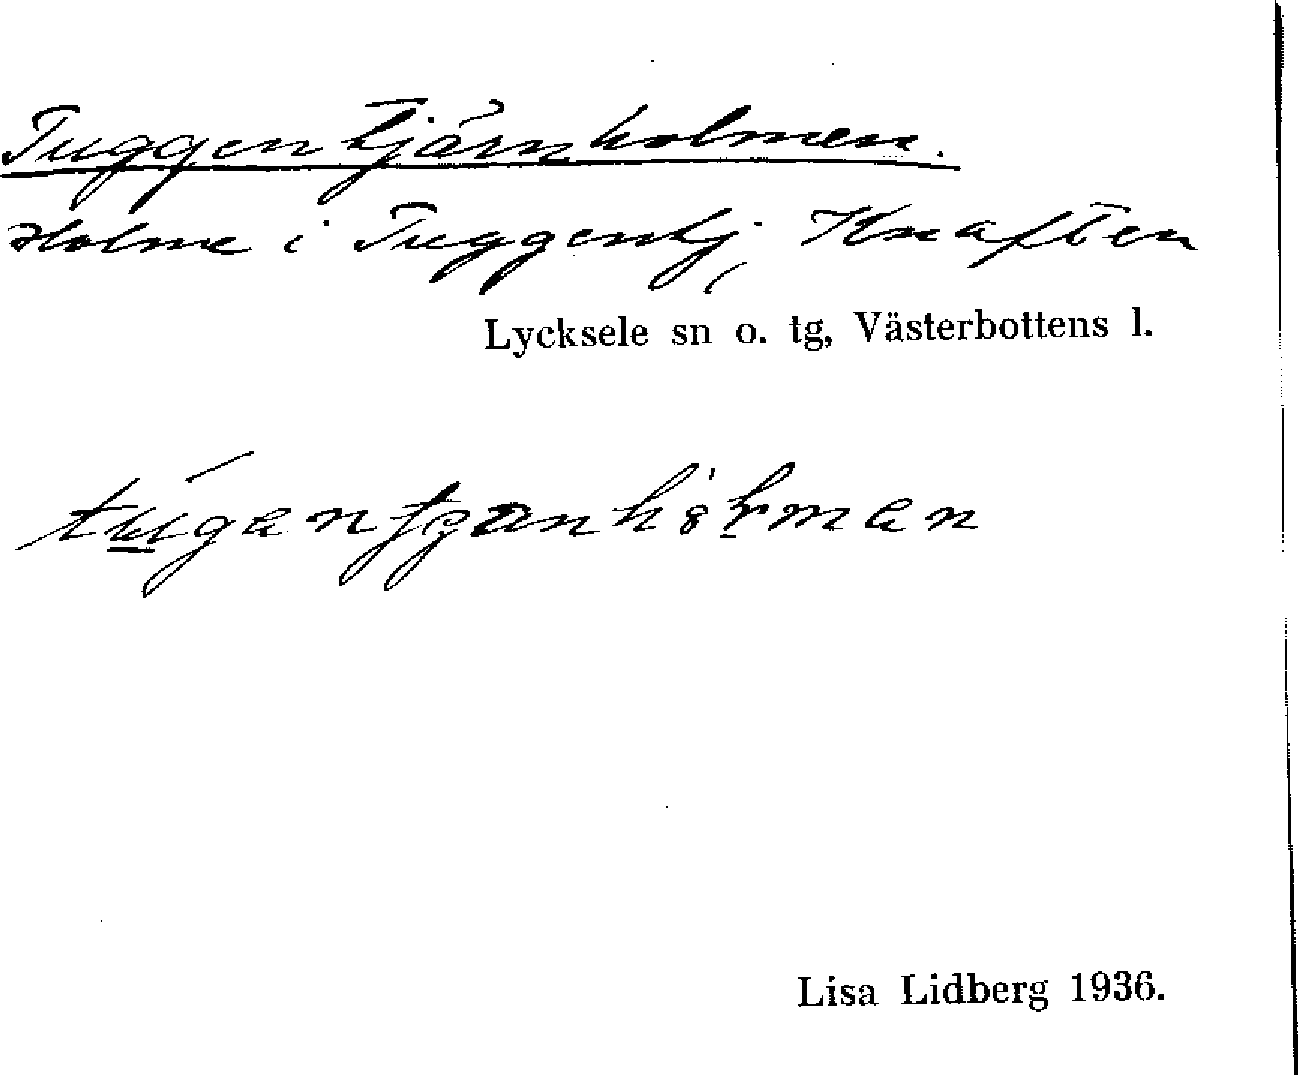 Tuggentjärnholmen.
Holme i Tuggentj, Knaften
Lycksele sn o. tg, Västerbottens l.
Lisa Lidberg 1936.